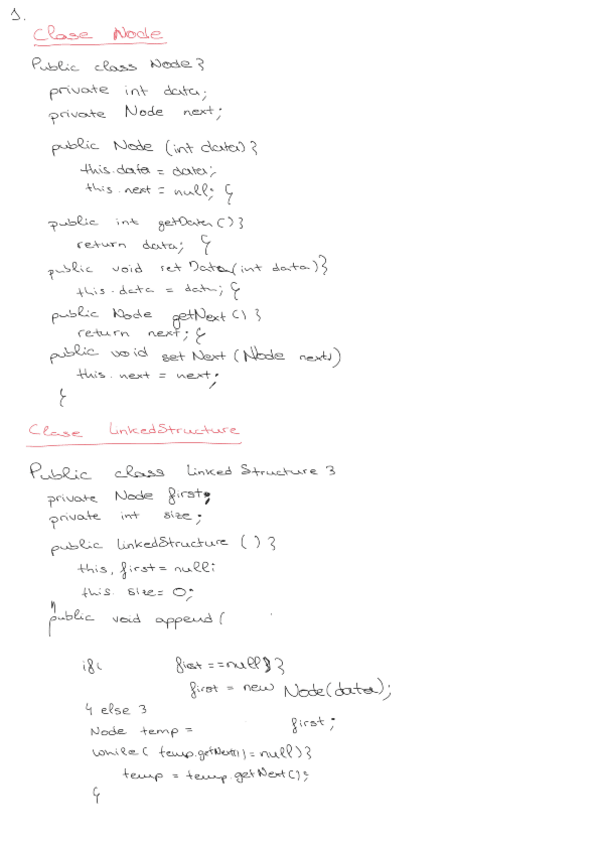 1.
Clase Node
Public class Node {
private int data;
private Node next;
public Node (int data) {
this.data = data;
this.next = null; }
public int getData () {
return data; }
public void setData (int data) {
this.data = data; }
public Node getNext () {
return next; }
public void setNext (Node next)
this.next = next;
}
Clase LinkedStructure
Public class Linked Structure {
private Node first;
private int size;
public linkedStructure () {
this, first = null;
this. size = 0;
public void append (
if( first == null) {
first = new Node(data);
} else {
Node temp = first;
while( temp.getNext() = null) {
temp = temp.getNext();
}